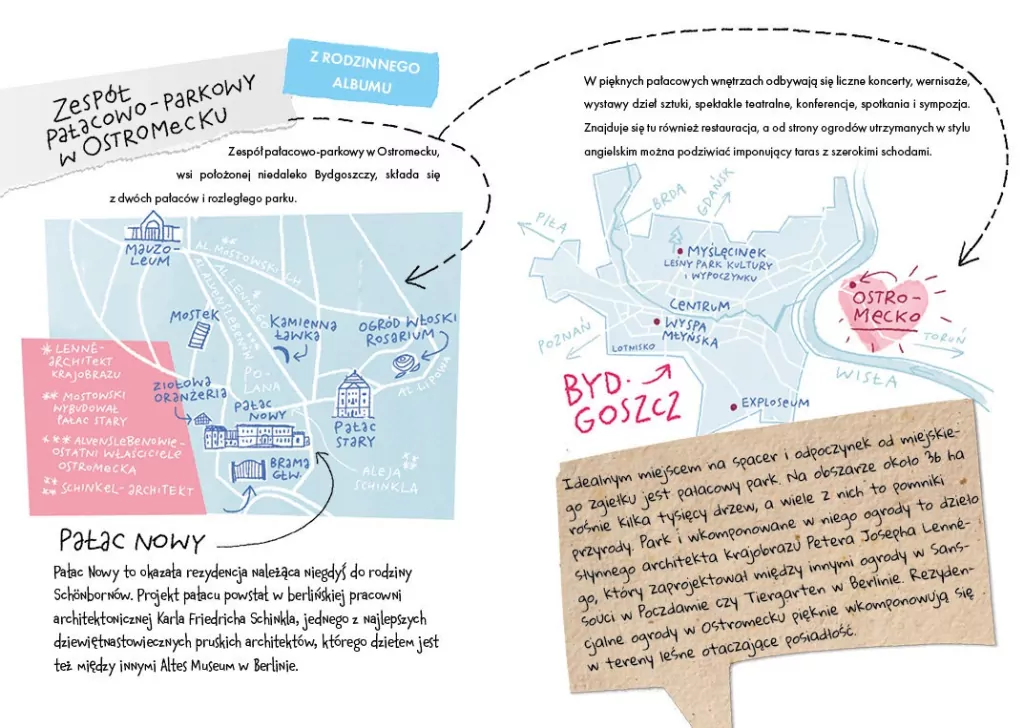 Zespół
pałacowo-parkowy
w Ostromecku
Z RODZINNEGO
ALBUMU
Zespół pałacowo-parkowy w Ostromecku,
wsi położonej niedaleko Bydgoszczy, składa się
z dwóch pałaców i rozległego parku.
Mauzo-
leum
Al. Mostowskich
Al. Lennego
Al. Alvenslebenów
Mostek
Kamienna
ławka
Ogród włoski
Rosarium
Polana
Al. Lipowa
Ziołowa
oranżeria
Pałac
Nowy
Pałac
Stary
Brama
Głw.
Aleja
Schinkla
* Lenné-
architekt
krajobrazu
** Mostowski
wybudował
Pałac Stary
*** Alvenslebenowie-
ostatni właściciele
Ostromecka
Schinkel-architekt
Pałac Nowy
Pałac Nowy to okazała rezydencja należąca niegdyś do rodziny
Schönbornów. Projekt pałacu powstał w berlińskiej pracowni
architektonicznej Karla Friedricha Schinkla, jednego z najlepszych
dziewiętnastowiecznych pruskich architektów, którego dziełem jest
też między innymi Altes Museum w Berlinie.
W pięknych pałacowych wnętrzach odbywają się liczne koncerty, wernisaże,
wystawy dzieł sztuki, spektakle teatralne, konferencje, spotkania i sympozja.
Znajduje się tu również restauracja, a od strony ogrodów utrzymanych w stylu
angielskim można podziwiać imponujący taras z szerokimi schodami.
Piła
Brda
Gdańsk
Myślęcinek
Leśny Park Kultury
i Wypoczynku
Centrum
Wyspa
Młyńska
Poznań
Lotnisko
Ostro-
mecko
Toruń
Wisła
BYD-
GOSZCZ
Exploseum
Idealnym miejscem na spacer i odpoczynek od miejskie-
go zgiełku jest pałacowy park. Na obszarze około 36 ha
rośnie kilka tysięcy drzew, a wiele z nich to pomniki
przyrody. Park i wkomponowane w niego ogrody to dzieło
słynnego architekta krajobrazu Petera Josepha Lenné-
go, który zaprojektował między innymi ogrody w Sans-
souci w Poczdamie czy Tiergarten w Berlinie. Rezyden-
cjalne ogrody w Ostromecku pięknie wkomponowują się
w tereny leśne otaczające posiadłość.